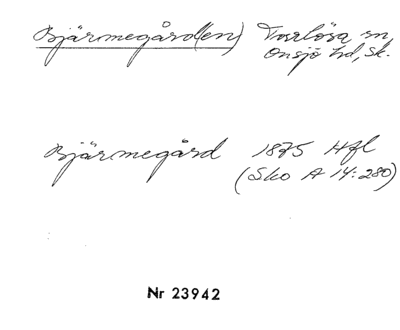 Bjärmegård(en) Torrlösa sn,
Onsjö hd, Sk.
Bjärmegård 1875 Hfl
(Sko A 14:280)
Nr 23942